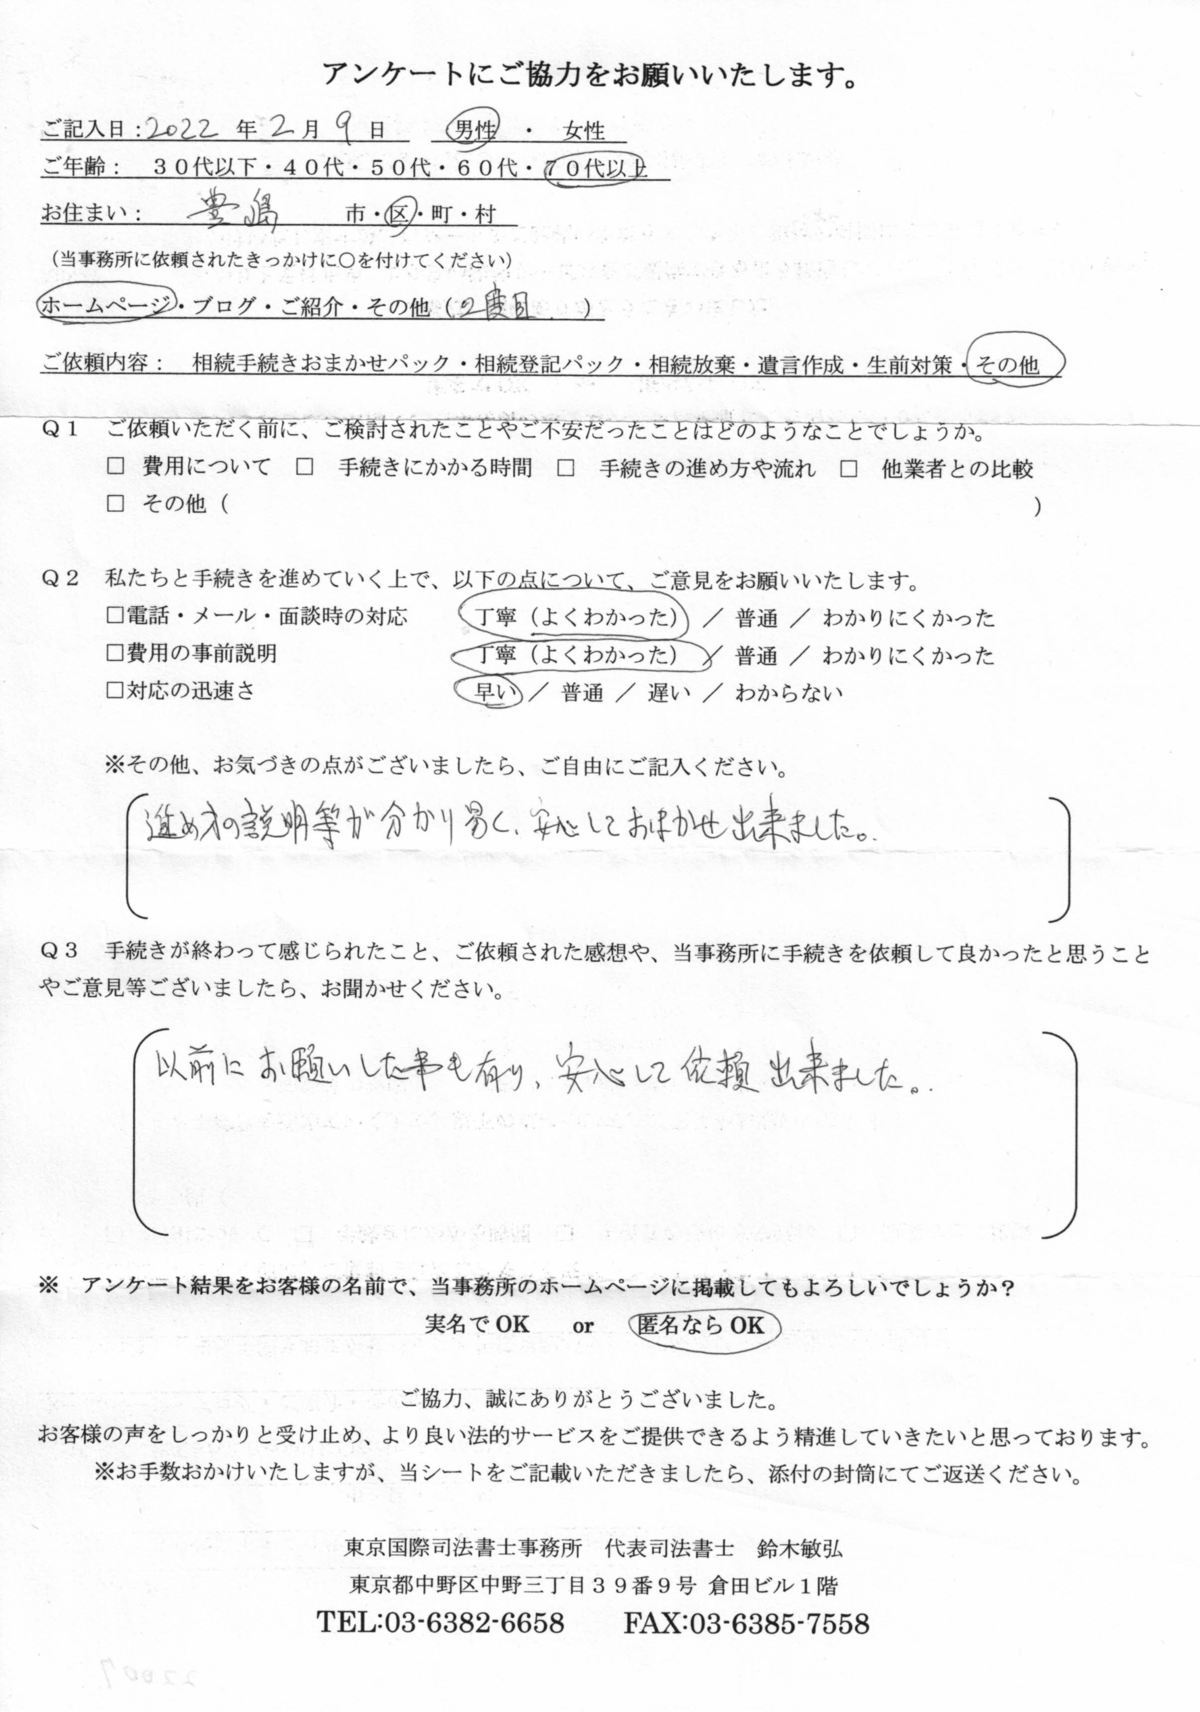 アンケートにご協力をお願いいたします。
ご記入日：2022 年 2 月 9 日　男性 ・ 女性
ご年齢：　３０代以下・４０代・５０代・６０代・７０代以上
お住まい：　豊島　市・区・町・村
（当事務所に依頼されたきっかけに○を付けてください）
ホームページ・ブログ・ご紹介・その他（２度目　）
ご依頼内容：　相続手続きおまかせパック・相続登記パック・相続放棄・遺言作成・生前対策・その他
Ｑ１　ご依頼いただく前に、ご検討されたことやご不安だったことはどのようなことでしょうか。
□ 費用について　□　手続きにかかる時間　□　手続きの進め方や流れ　□　他業者との比較
□ その他（　）
Ｑ２　私たちと手続きを進めていく上で、以下の点について、ご意見をお願いいたします。
□電話・メール・面談時の対応　丁寧（よくわかった） ／ 普通 ／ わかりにくかった
□費用の事前説明　丁寧（よくわかった） ／ 普通 ／ わかりにくかった
□対応の迅速さ　早い ／ 普通 ／ 遅い ／ わからない
※その他、お気づきの点がございましたら、ご自由にご記入ください。
進め方の説明等が分かり易く、安心しておまかせ出来ました。
Ｑ３　手続きが終わって感じられたこと、ご依頼された感想や、当事務所に手続きを依頼して良かったと思うこと
やご意見等ございましたら、お聞かせください。
以前にお願いした事も有り、安心して依頼出来ました。
※　アンケート結果をお客様の名前で、当事務所のホームページに掲載してもよろしいでしょうか？
実名で OK　or　匿名なら OK
ご協力、誠にありがとうございました。
お客様の声をしっかりと受け止め、より良い法的サービスをご提供できるよう精進していきたいと思っております。
※お手数おかけいたしますが、当シートをご記載いただきましたら、添付の封筒にてご返送ください。
東京国際司法書士事務所　代表司法書士　鈴木敏弘
東京都中野区中野三丁目３９番９号 倉田ビル１階
TEL:03-6382-6658　FAX:03-6385-7558